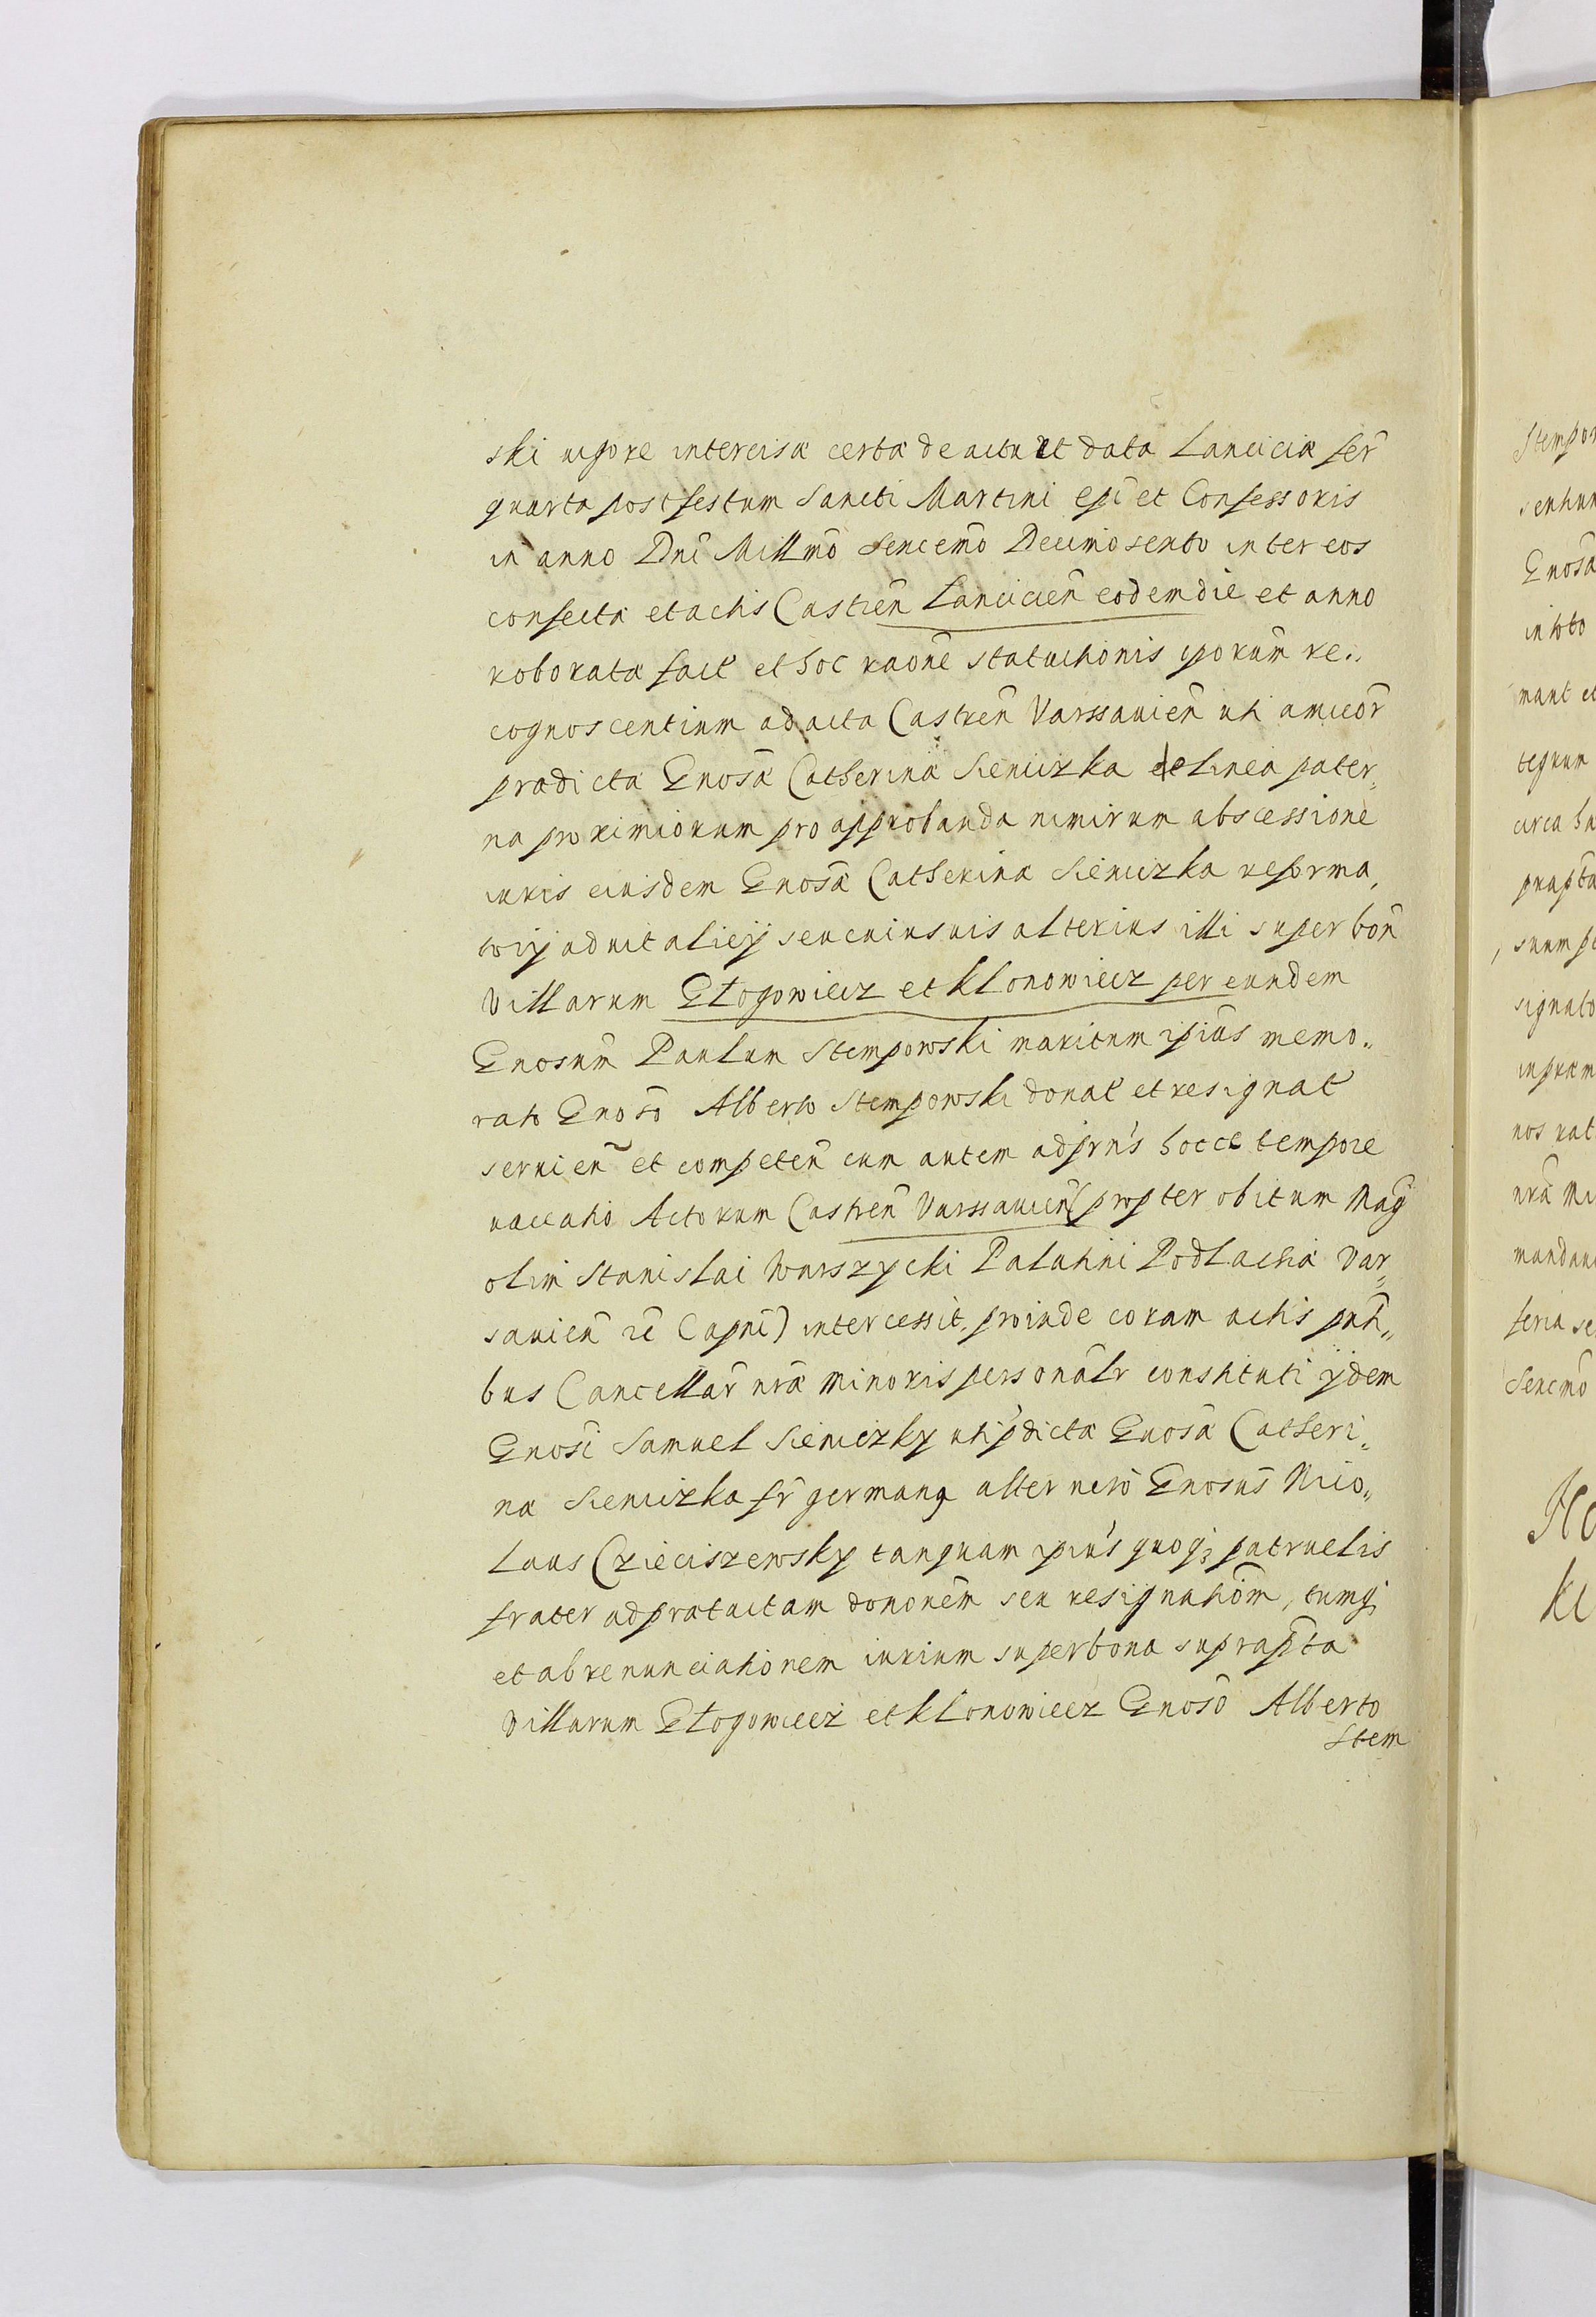 ski uigore intercisæ certæ de actu et data Lanciciæ fer̃
quarta post festum Sancti Martini Epĩ et Confessoris
in anno Dnĩ Millmõ Sexcemõ Decimo sexto inter eos
confectæ et actis Castreñ Lancicieñ eodem die et anno
roboratæ fact̃ et hoc raõne statuitionis ipsorum̃ re„
cognoscentium ad acta Castreñ Varssauieñ uti amicor̃
prædictæ Gnosæ̃ Catherinæ Sieniczka de linea pater„
na proximiorum pro approbanda nimirum abscessione
iuris eiusdem Gnosæ̃ Catherinæ Sieniczka reforma„
torij aduitalicij seu cuiusuis alterius illi super boñ
Villarum Głogowiecz et Klonowiecz per eundem
Gnosum̃ Paulum Stempowski maritum ipiũs memo„
rato Gnosõ Alberto Stempowski donat̃ et resignat̃
seruieñ et competeñ cum autem ad prñs hocce tempore
uaccatio Actorum Castreñ Varssauieñ (propter obitum Mag̃
olim Stanislai Warszycki Palatini Podlachiæ Var„
sauieñ ꝛc̃ Capnĩ) intercessit, proinde coram actis pñti„
bus Cancellar̃ nræ̃ minoris personalr̃ constituti ijdem
Gnosĩ Samuel Sieniczky uti p̃dictæ Gnosæ̃ Catheri„
næ Sieniczka fr̃ germanq̃ alter uero Gnosus̃ Nico„
laus Czieciszewsky tanquam ipiũs quoq; patruelis
frater ad prætactam dononem̃ seu resignationm̃, tumq;
et abrenunciationem iurium super bona supraptã
Villarum Głogowiecz et Klonowiecz Gnosõ Alberto
Stem
Stempo
Gnosã
in toto
mant et
circa
praptã
suum
signato
nos rat
feria se
Sexcmõ